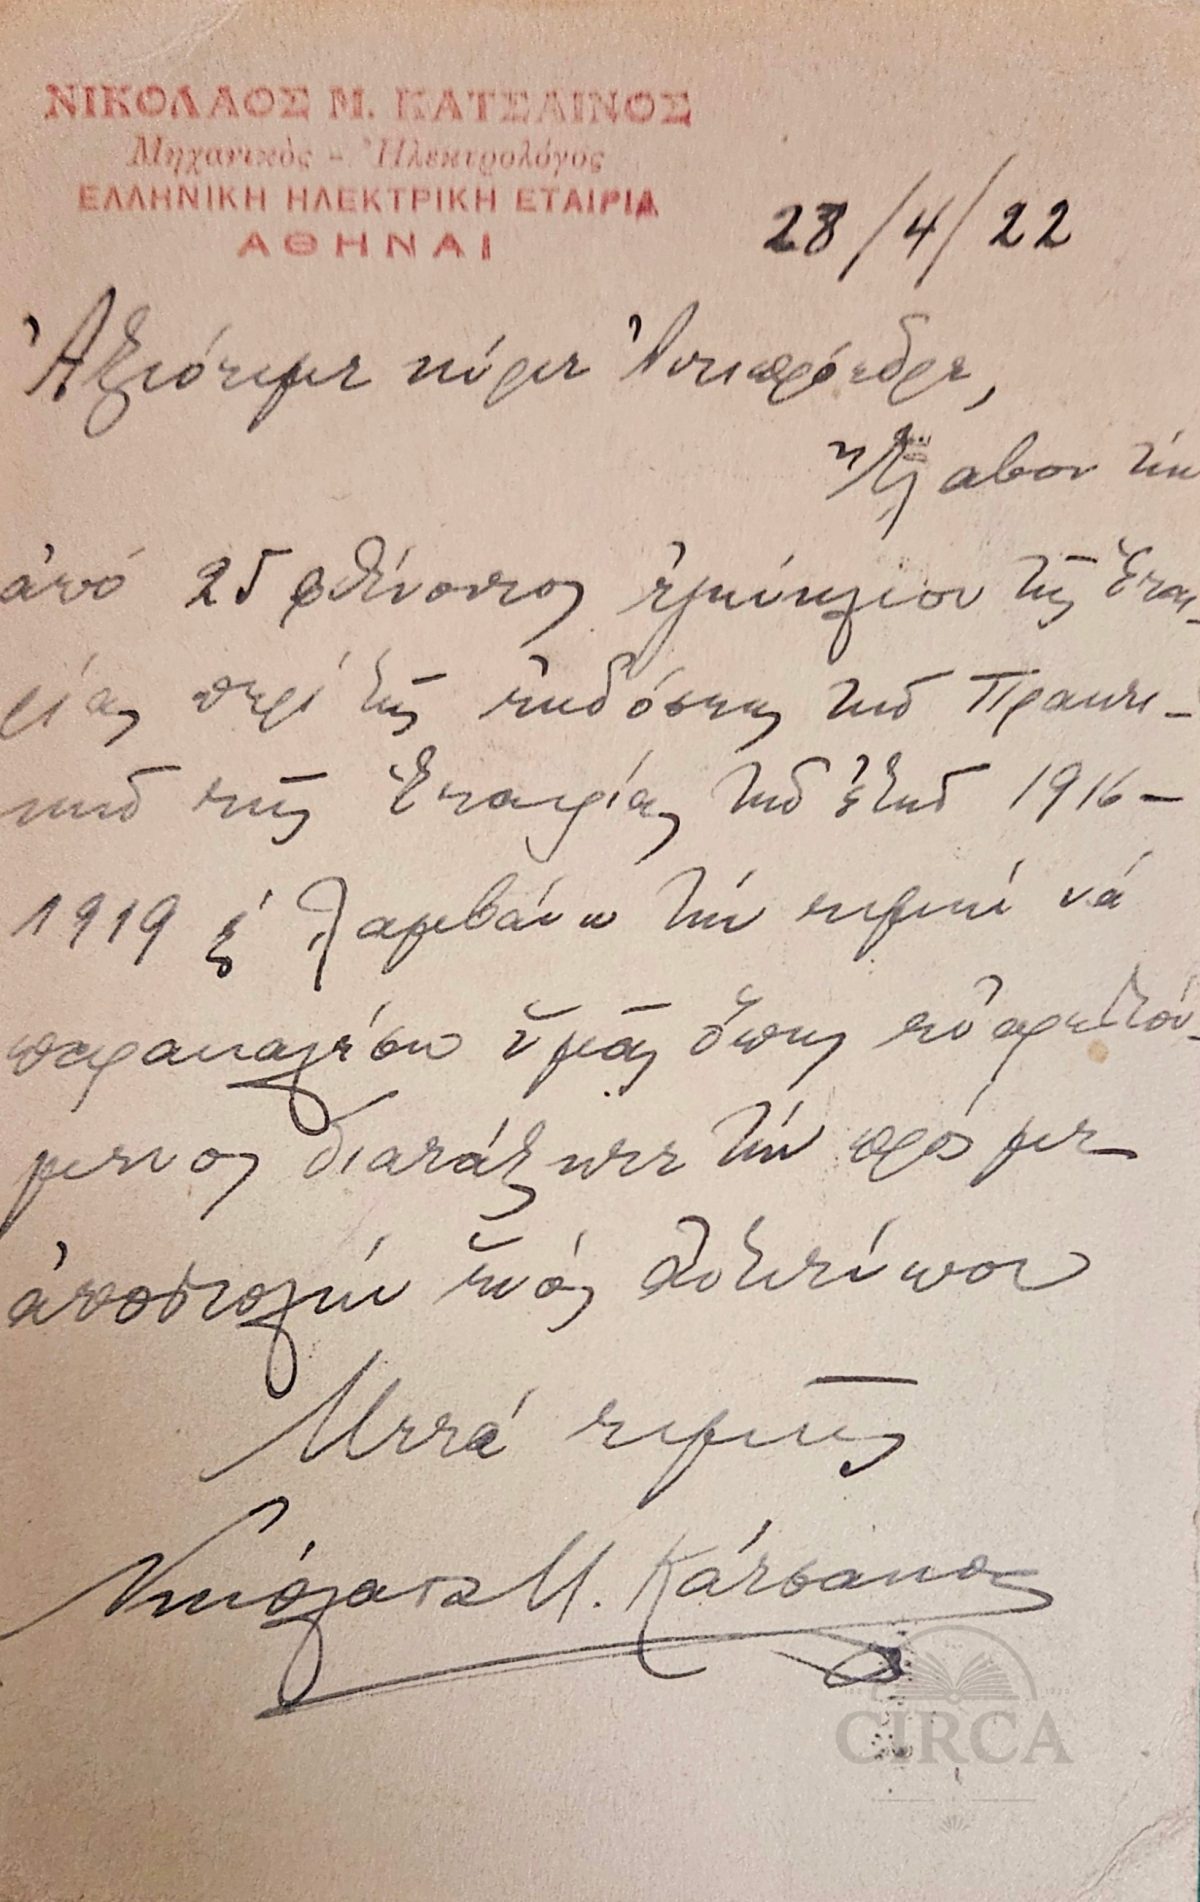 ΝΙΚΟΛΑΟΣ Μ. ΚΑΤΣΑΙΝΟΣ
Μηχανικὸς - Ἠλεκτρολόγος
ΕΛΛΗΝΙΚΗ ΗΛΕΚΤΡΙΚΗ ΕΤΑΙΡΙΑ
ΑΘΗΝΑΙ
28/4/22
Ἀξιότιμε κύριε Ἀντιπρόεδρε,
Ἔλαβον τὴν
ἀπὸ 25 φθίνοντος ἐγκύκλιον τῆς Ἑται-
ρίας περὶ τῆς ἐκδόσεως τοῦ Πρακτι-
κοῦ τῆς Ἑταιρίας τοῦ ἔτους 1916-
1919 & λαμβάνω τὴν τιμὴν νὰ
παρακαλέσω ὑμᾶς ὅπως εὐαρεστού-
μενος διατάξητε τὴν πρός με
ἀποστολὴν ἑνὸς ἀντιτύπου
Μετὰ τιμῆς
Νικόλαος Μ. Κάτσαινος
CIRCA